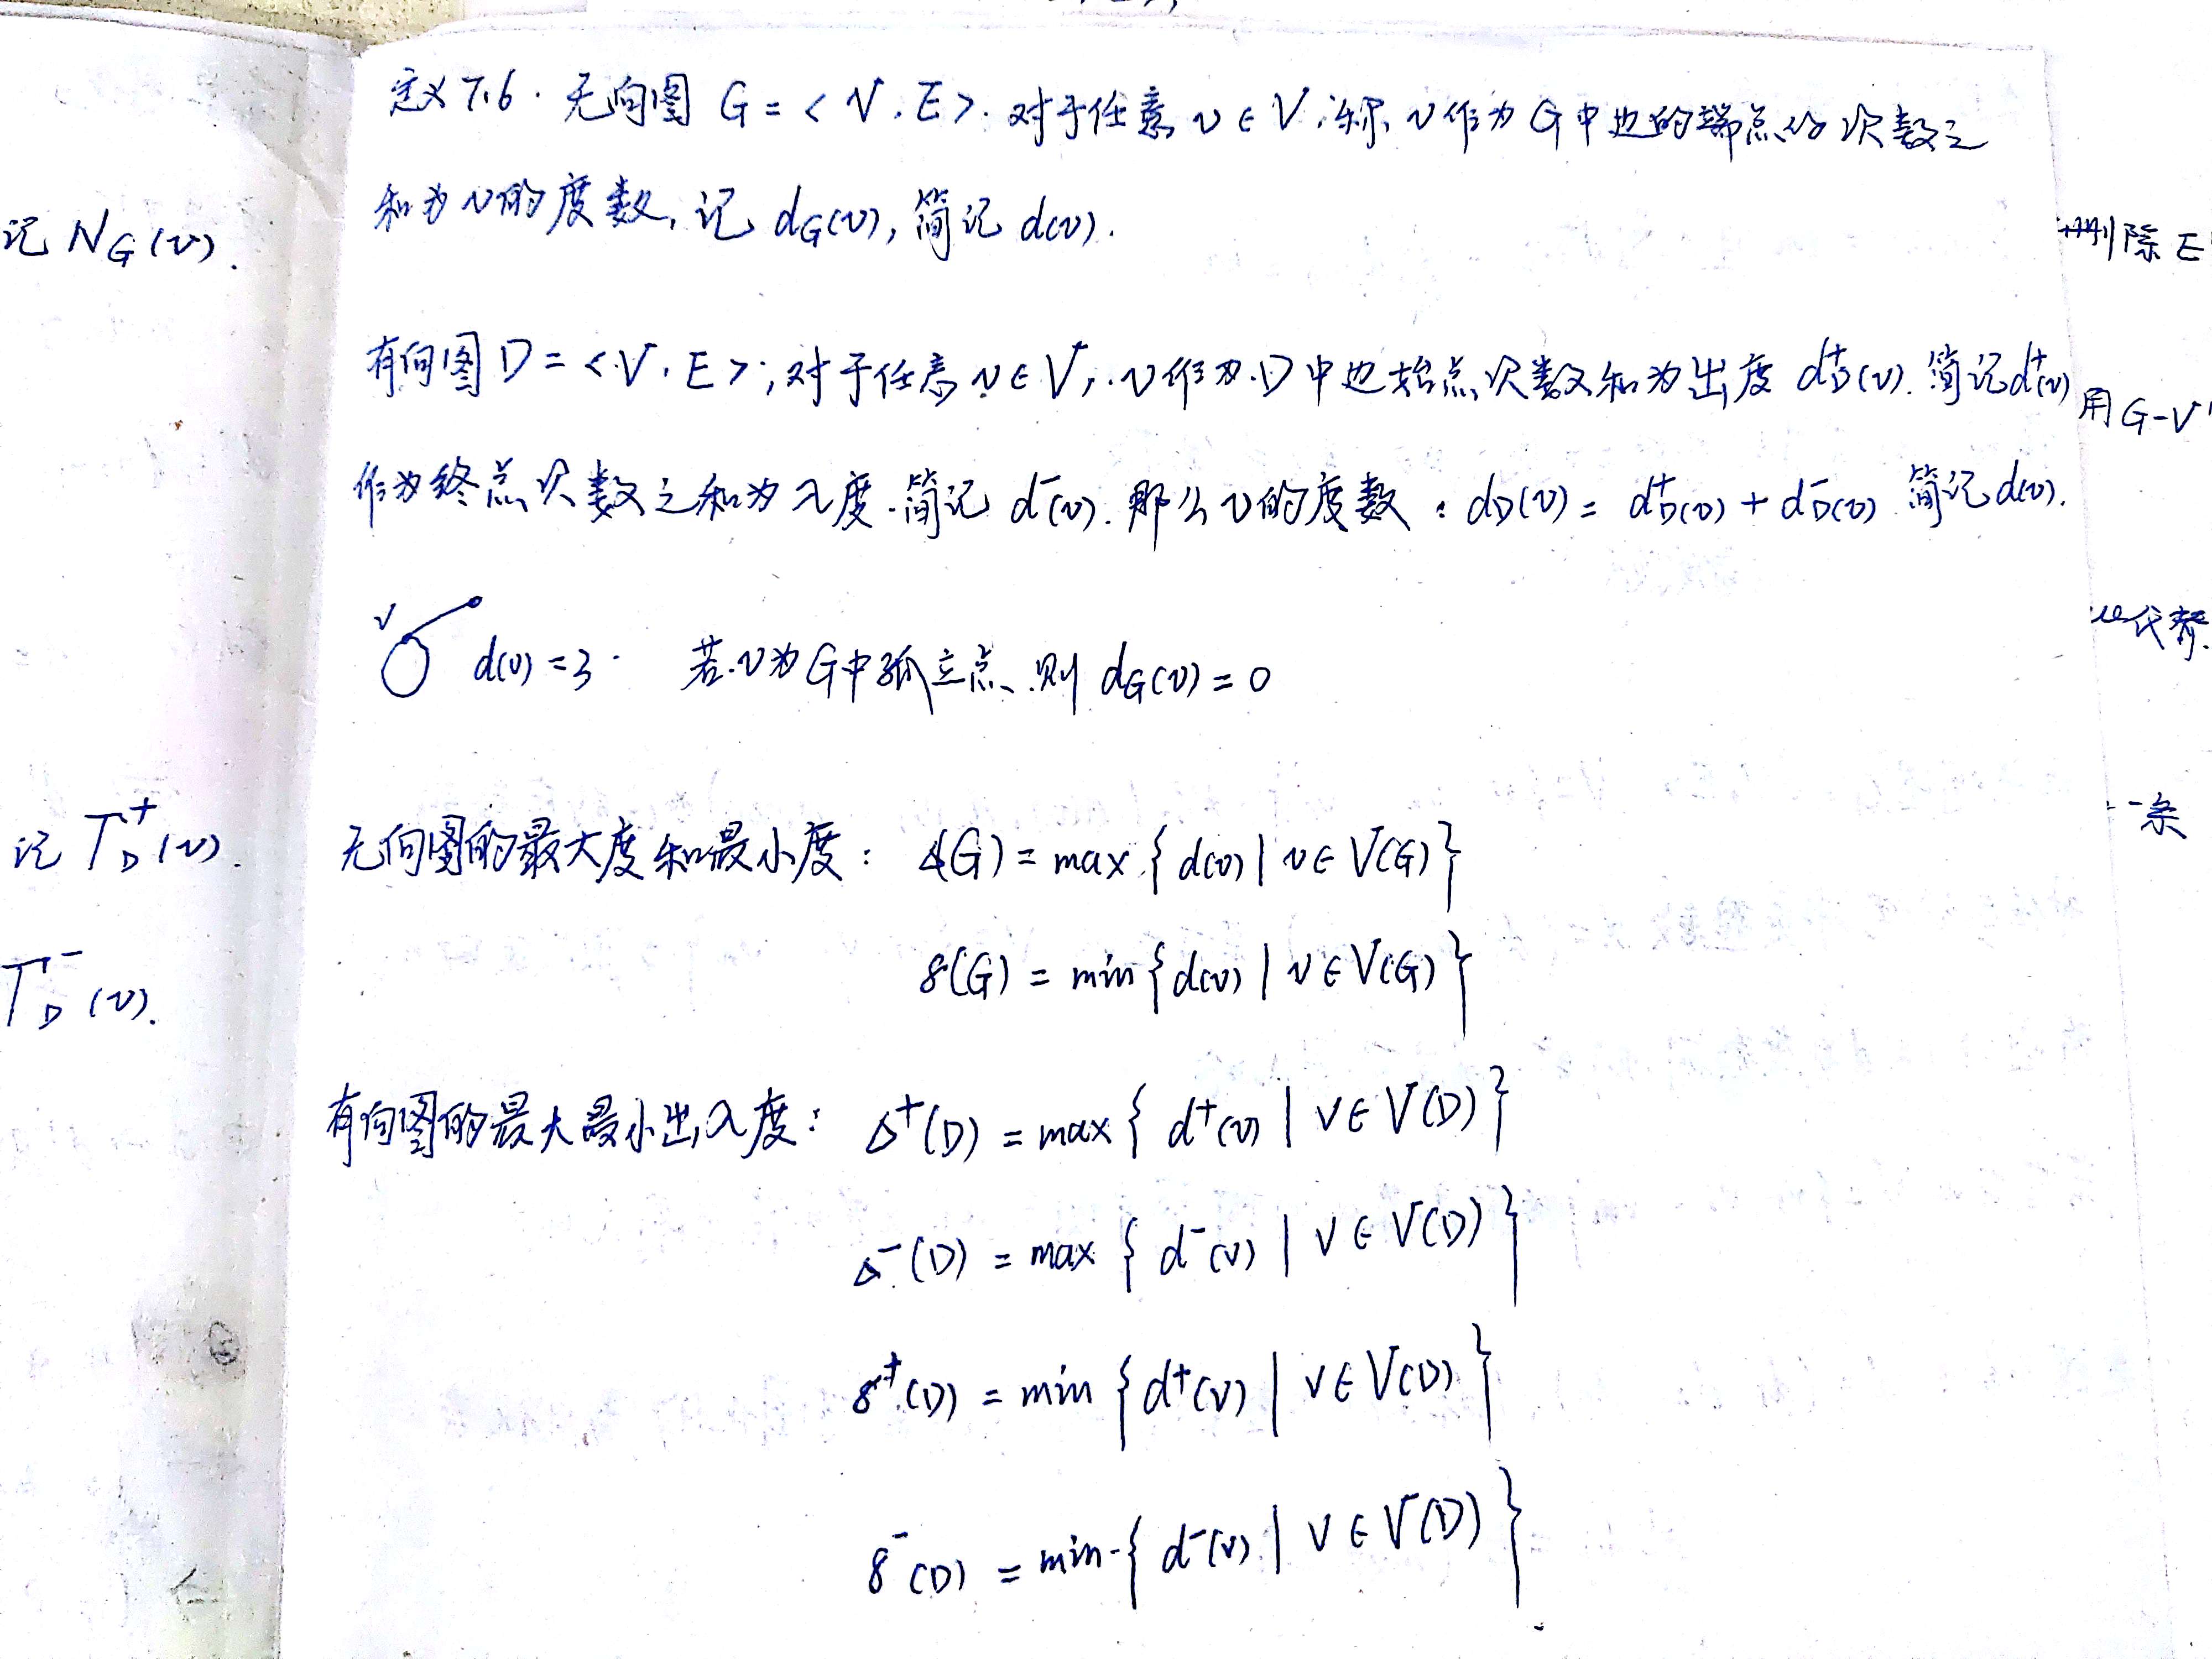 定义7.6. 无向图 G = <V, E>. 对于任意 v ∈ V, 称 v作为G中边的端点的次数之
和为v的度数, 记 d_G(v), 简记 d(v).
有向图 D = <V, E>, 对于任意 v ∈ V, v作为D中边始点次数和为出度 d_D^+(v). 简记 d^+(v)
作为终点次数之和为入度. 简记 d^-(v). 那么v的度数: d_D(v) = d_D^+(v) + d_D^-(v) 简记 d(v).
v d(v) = 3. 若v为G中孤立点, 则 d_G(v) = 0
无向图的最大度和最小度: Δ(G) = max { d(v) | v ∈ V(G) }
δ(G) = min { d(v) | v ∈ V(G) }
有向图的最大最小出入度: Δ^+(D) = max { d^+(v) | v ∈ V(D) }
Δ^-(D) = max { d^-(v) | v ∈ V(D) }
δ^+(D) = min { d^+(v) | v ∈ V(D) }
δ^-(D) = min { d^-(v) | v ∈ V(D) }
记 N_G(v).
记 Γ_D^+(v).
Γ_D^-(v).
删除 E'
用 G-V'
代替.
一条